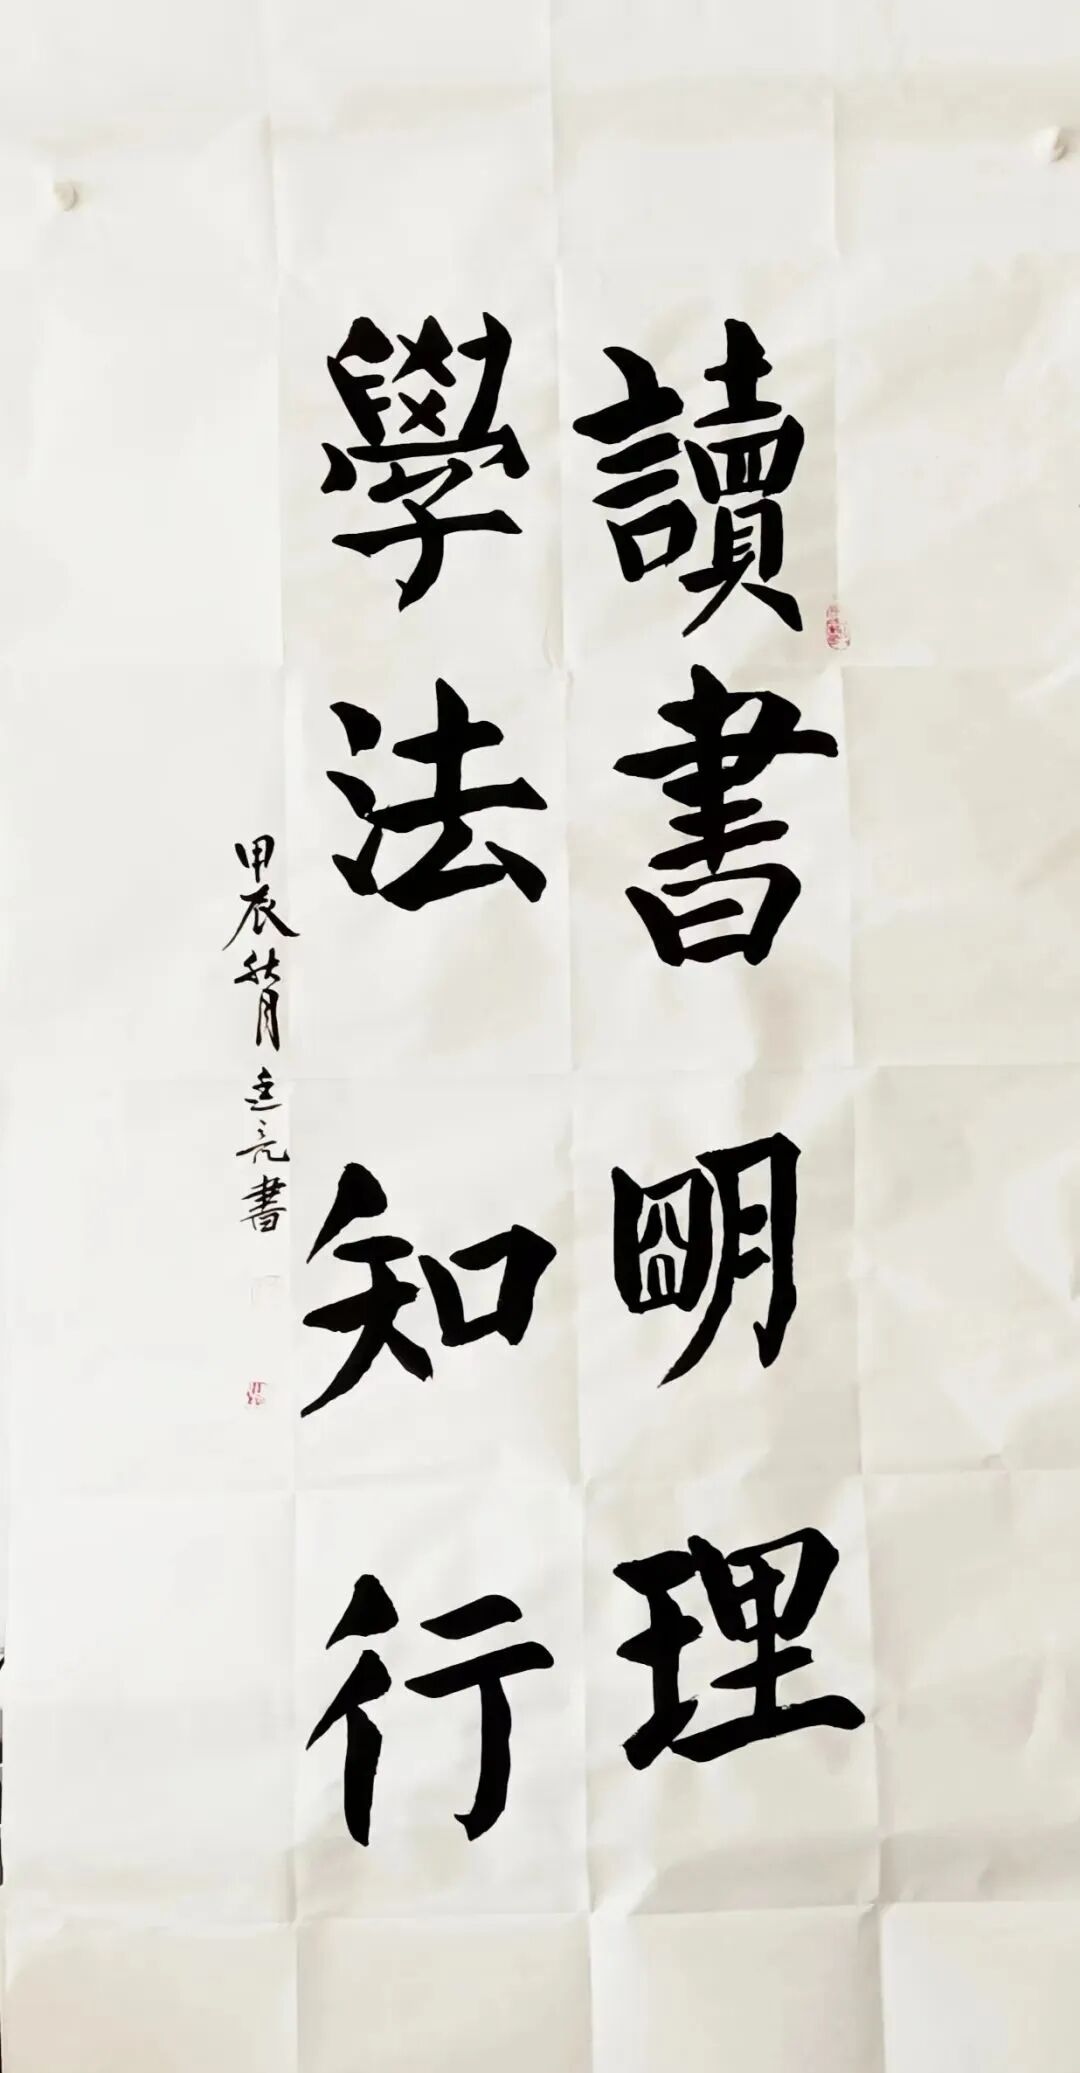 讀書明理
學法知行
甲辰秋月廷亮書